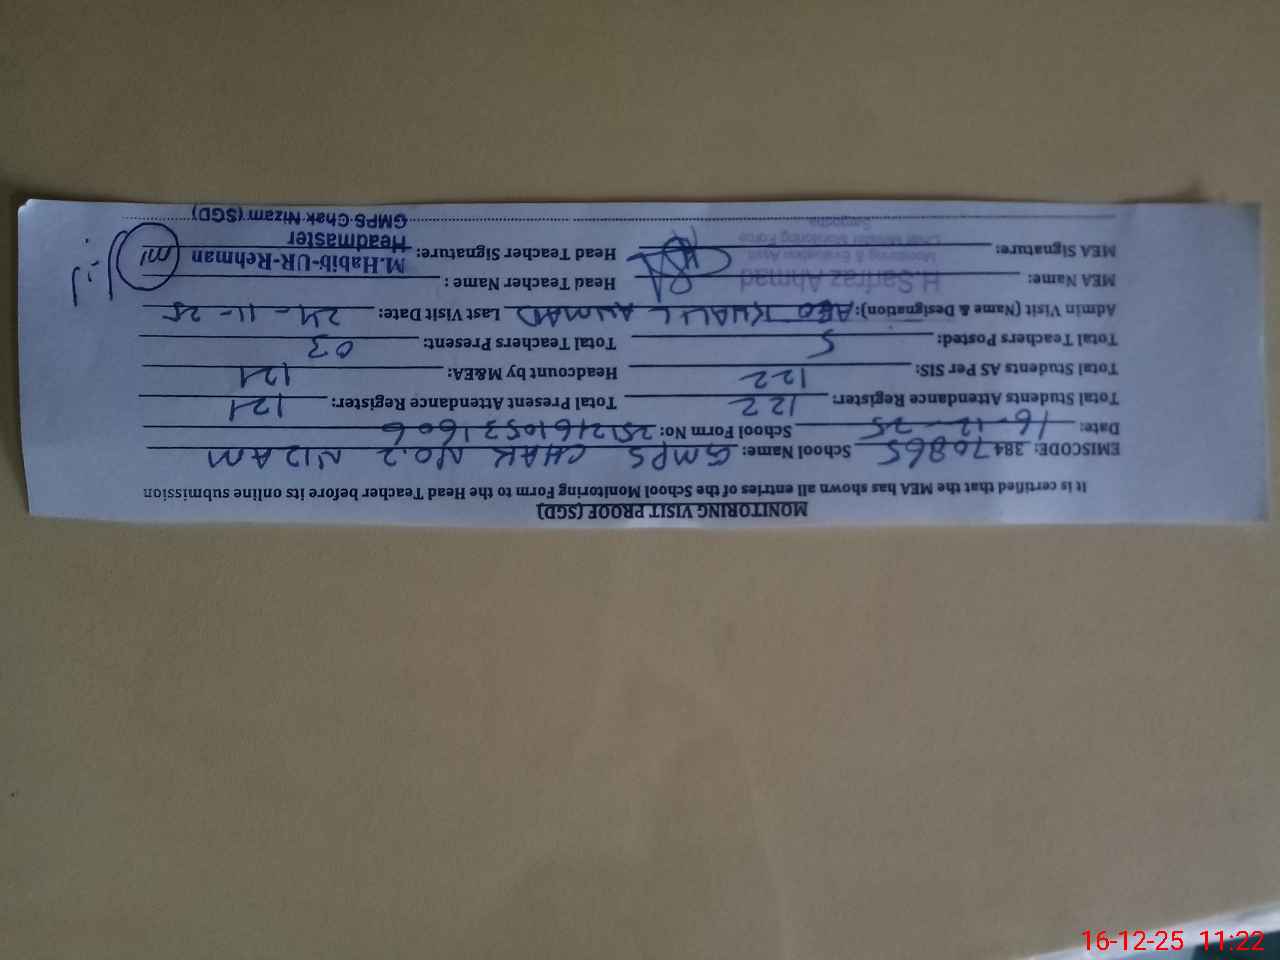 MONITORING VISIT PROOF (SGD)
It is certified that the MEA has shown all entries of the School Monitoring Form to the Head Teacher before its online submission
EMISCODE: 38470865 School Name: GMPS CHAK NO.2 NIZAM
Date: 16-12-25 School Form No: 2512161053 1606
Total Students Attendance Register: 122 Total Present Attendant Register: 121
Total Students AS Per SIS: 122 Headcount by M&EA: 121
Total Teachers Posted: 5 Total Teachers Present: 03
Admin Visit (Name & Designation): AEO KHALIL AHMAD Last Visit Date: 24-11-25
MEA Name: H.Sarfraz Ahmad Head Teacher Name :
Monitoring & Evaluation Asstt
MEA Signature: Chief Minister Monitoring Force Head Teacher Signature: M.Habib-UR-Rehman
Sargodha Headmaster
GMPS Chak Nizam (SGD)
16-12-25 11:22